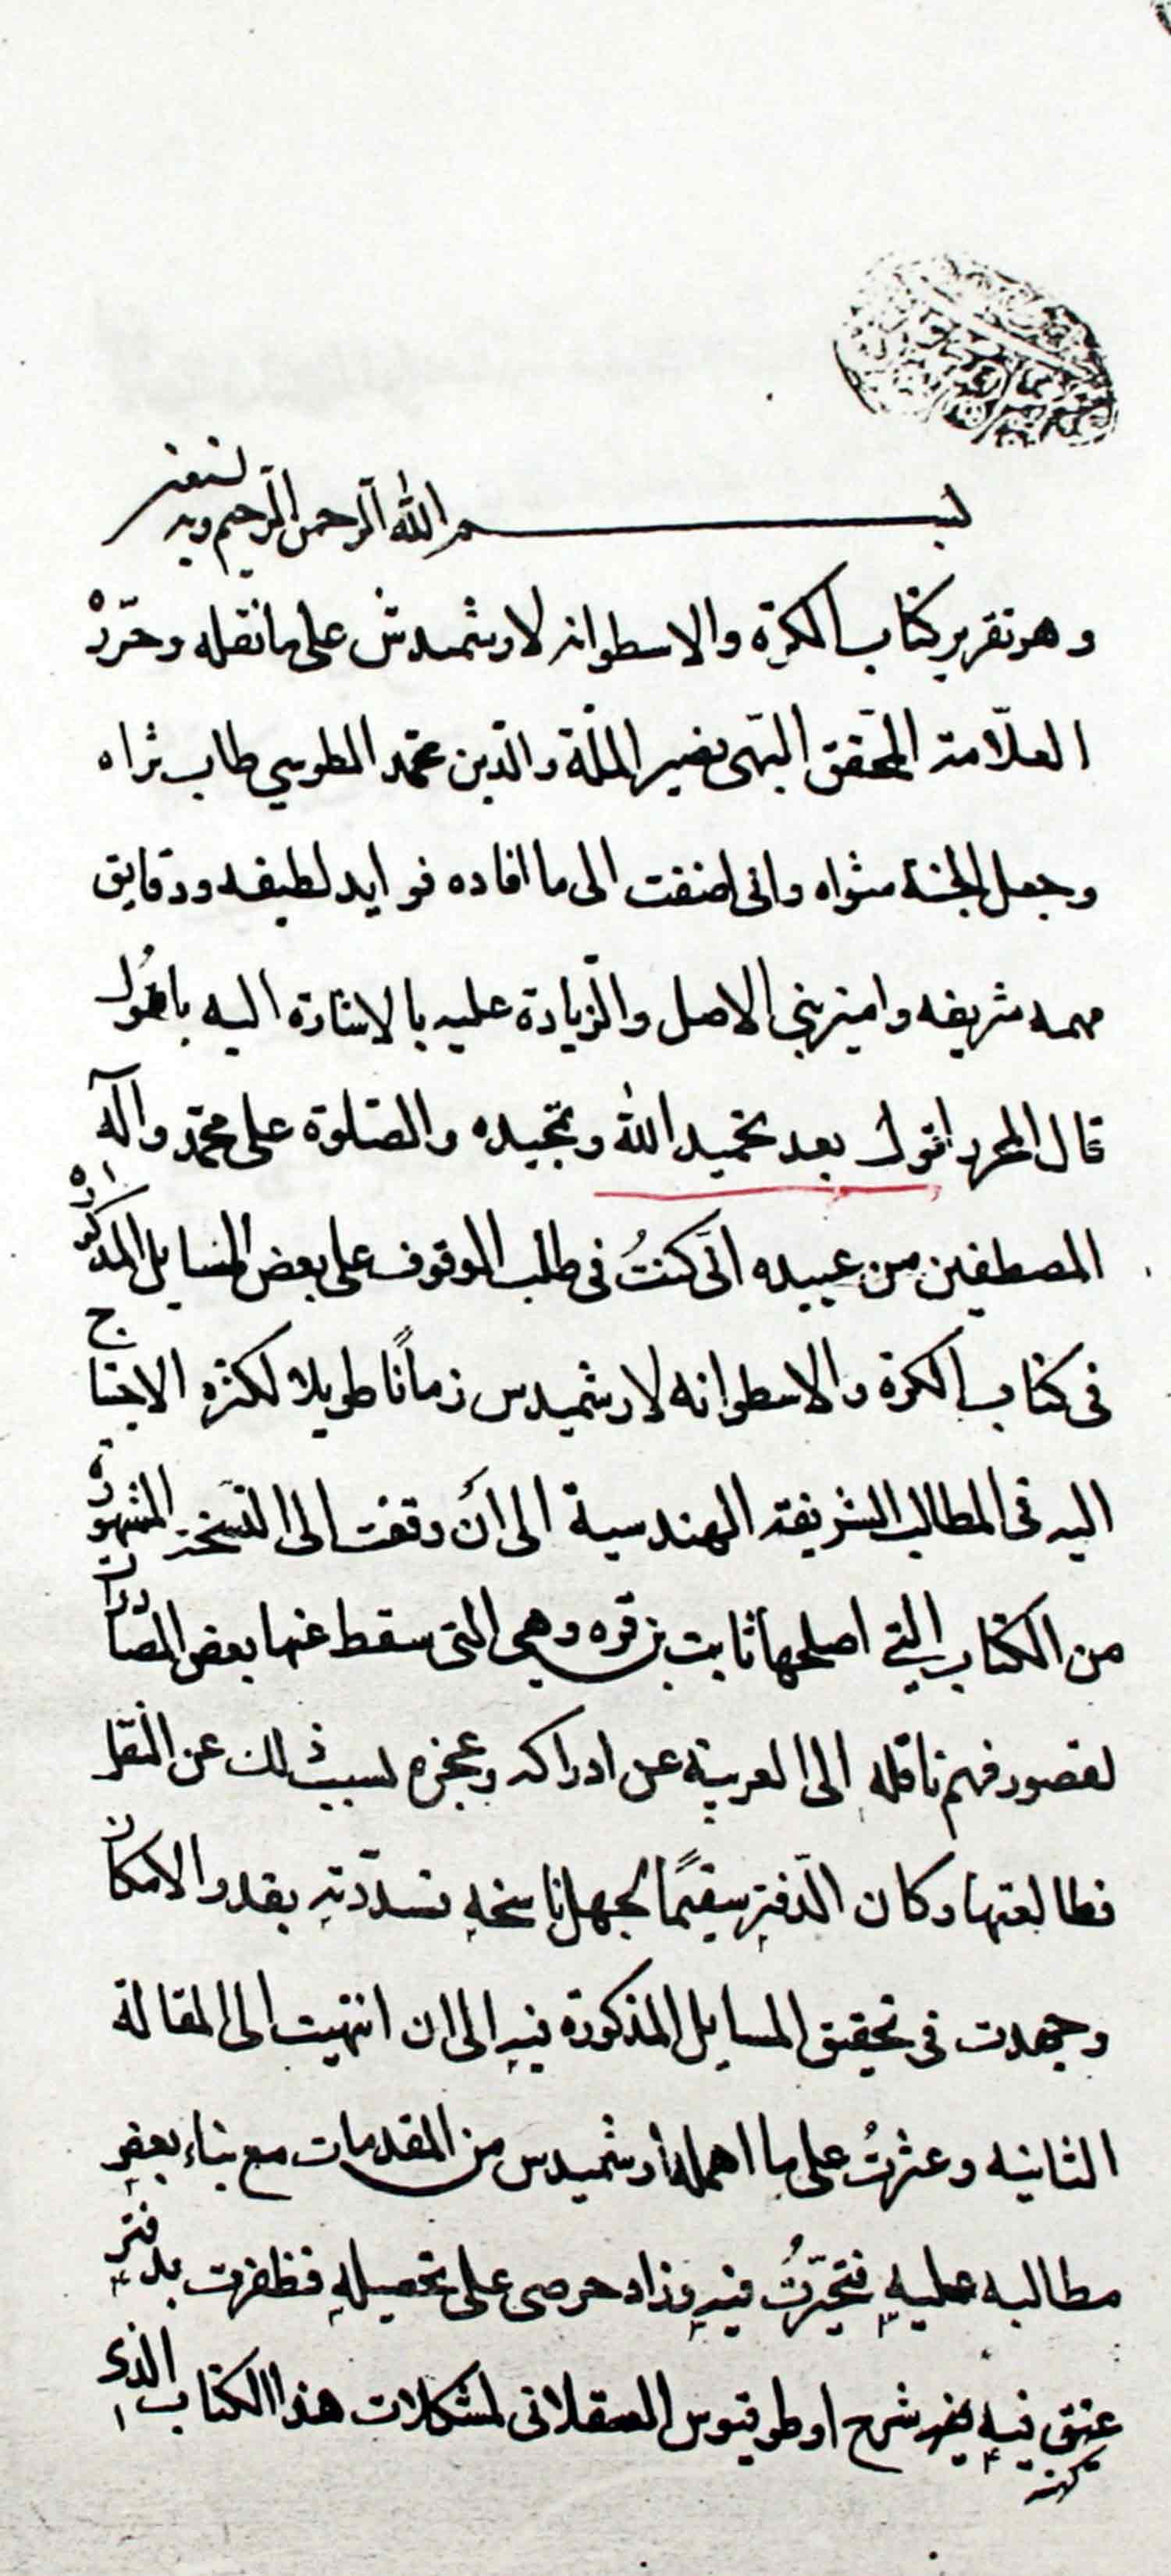 بسم الله الرحمن الرحيم وبه نستعين
وهو تقرير كتاب الكرة والاسطوانه لارشميدش على ما نقله وحرّره
العلّامة المحقق البهى نصير الملّة والدّين محمد الطوسي طاب ثراه
وجعل الجنة مثواه وانى اضفت الى ما افاده فوايد لطيفه ودقايق
مهمه شريفه واميز بين الاصل والزّيادة عليه بالاشارة اليه باقول
قال المحرر اقول بعد تحميد الله وتمجيده والصّلوة على محمّد وآله
المصطفين من عبيده انّى كنتُ فى طلب الوقوف على بعض المسايل المذكوره
فى كتاب الكرة والاسطوانه لارشميدس زمانًا طويلا لكثره الاحتياج
اليه فى المطالب الشريفة الهندسية الى ان وقفت الى النسخة المشهورة
من الكتاب التي اصلحها ثابت بن قره وهي التى سقط عنها بعض المصادرات
لقصور فهم ناقله الى العربية عن ادراكه وعجزه لسبب ذلك عن النقل
فطالعتها وكان الدّفتر سقيمًا لجهل ناسخه فسدّدته بقدر الامكان
وجهدت فى تحقيق المسايل المذكورة فيه الى ان انتهيت الى المقالة
الثانيه وعثرتُ على ما اهمله ارشميدس من المقدمات مع بناء بعض
مطالبه عليه فتحيّرتُ فيه وزاد حرصى على تحصيله فظفرت بدفتر
عتيق فيه شرح اوطوقيوس العسقلانى لمشكلات هذا الكتاب الذى
كهنه